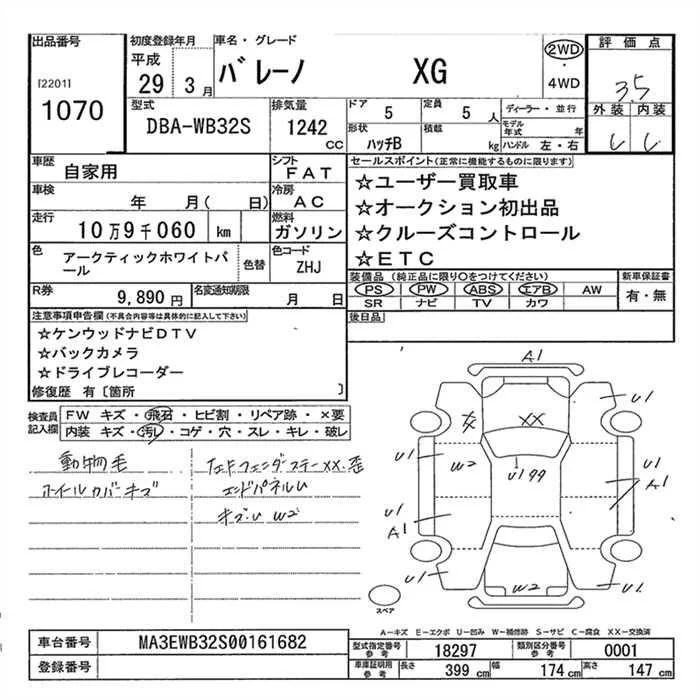 出品番号
[2201]
1070
初度登録年月
平成
29年3月
車名・グレード
バレーノ XG
2WD
・
4WD
評価点
3.5
外装 内装
型式
DBA-WB32S
排気量
1242
CC
ドア
5
定員
5人
ディーラー・並行
形状
ハッチB
積載
kg
モデル年式 年
ハンドル 左・右
車歴
自家用
シフト
FAT
車検
年 月( 日)
冷房
AC
走行
10万9千060 km
燃料
ガソリン
色
アークティックホワイトパール
色替
色コード
ZHJ
R券
9,890円
名変通知期限
月 日
セールスポイント(正常に機能するものに限ります)
☆ユーザー買取車
☆オークション初出品
☆クルーズコントロール
☆ETC
装備品(純正品に限り○をつけてください)
PS PW ABS エアB AW
SR ナビ TV カワ
新車保証書
有・無
後日品
注意事項申告欄(不具合内容等は具体的に記入して下さい)
☆ケンウッドナビDTV
☆バックカメラ
☆ドライブレコーダー
修復歴 有〔箇所 〕
検査員記入欄
FW キズ・飛石・ヒビ割・リペア跡・×要
内装 キズ・汚レ・コゲ・穴・スレ・キレ・破レ
動物毛
ホイールカバーキズ
エンドパネルU
キズ.U W2
A1
U1
XX
XX
U1
W2
U1 99
U1
A1
U1
A1
U1
W2
U1
スペア
A-キズ E-エクボ U-凹み W-補修跡 S-サビ C-腐食 XX-交換済
車台番号
MA3EWB32S00161682
登録番号
型式指定番号
参考
18297
類別区分番号
参考
0001
車庫証明用
参考
長さ
399 cm
幅
174 cm
高さ
147 cm